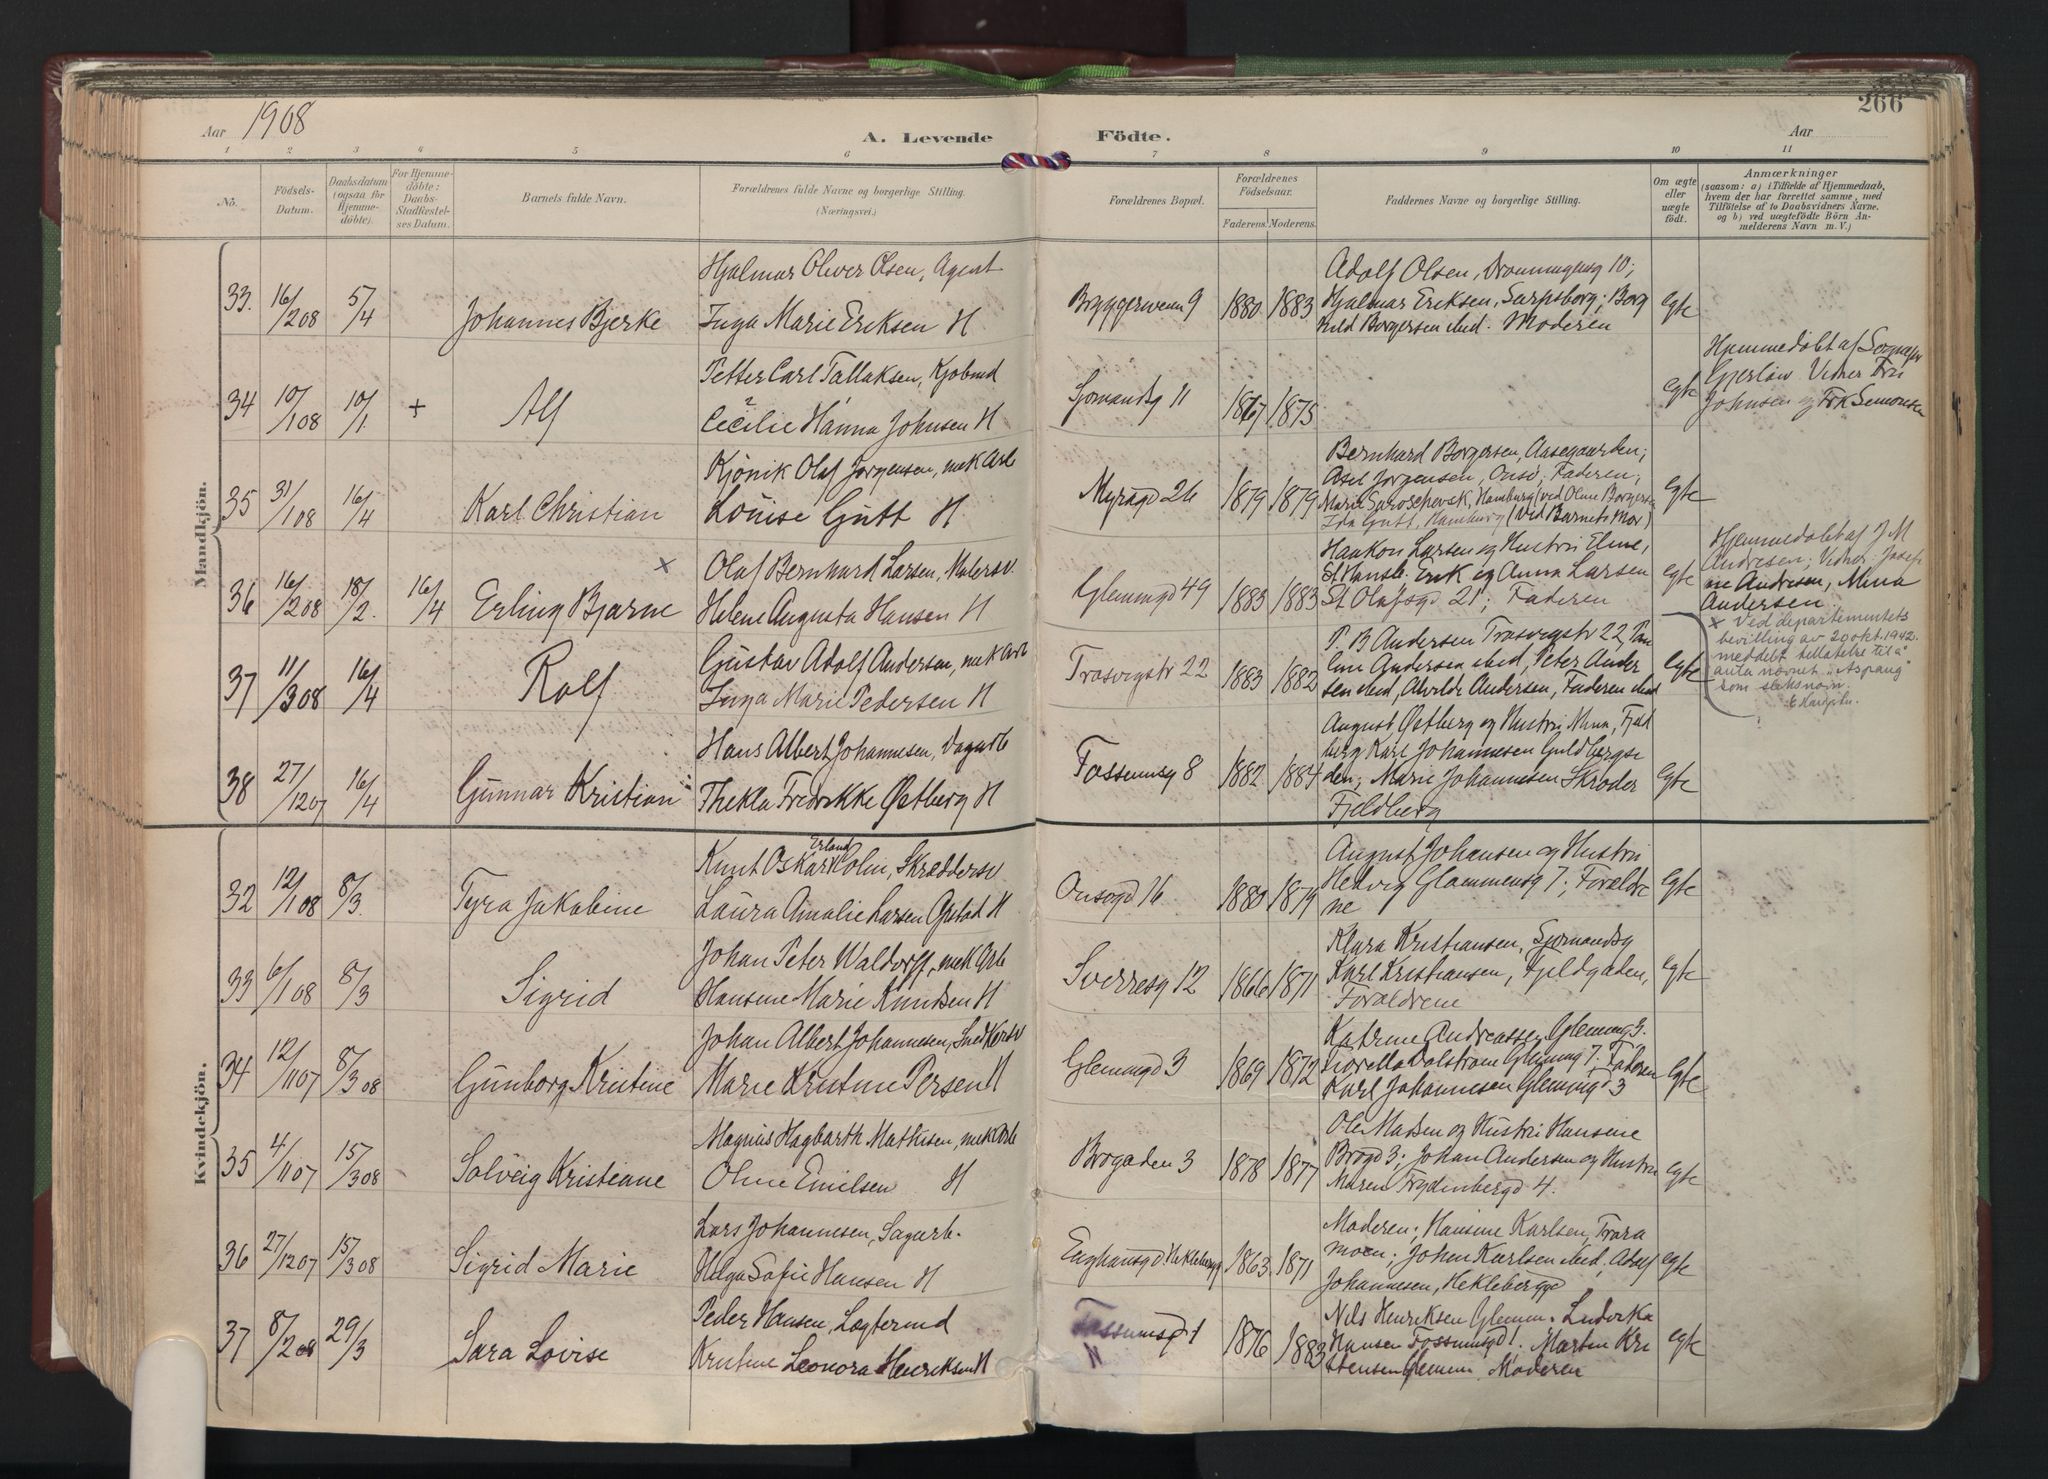 266
Aar 1908
A. Levende Födte.
Aar
1 2 3 4 5 6 7 8 9 10 11
No.
Födsels-Datum.
Daabsdatum (ogsaa for Hjemme-döbte).
For Hjemme-döbte: Daabs-Stadfæstel-ses Datum.
Barnets fulde Navn.
Forældrenes fulde Navne og borgerlige Stilling.
(Næringsvei.)
Forældrenes Bopæl.
Forældrenes Födselsaar.
Faderens. Moderens.
Faddernes Navne og borgerlige Stilling.
Om ægte eller uægte födt.
Anmærkninger
(saasom: a) i Tilfælde af Hjemmedaab,
hvem der har forrettet samme, med
Tilföielse af to Daabsvidners Navne.
og b) ved uægtefödte Börn An-
melderens Navn m. V.)
Mandkjön.
33. 16/2 08 5/4 Johannes Bjerke
Hjalmar Oliver Olsen, Agent
Inga Marie Eriksen H
Bryggerveien 9 1880 1883
Adolf Olsen, Dronningensg 10;
Hjalmar Eriksen, Sarpsborg; Borg
hild Borgersen ibid. Moderen
Egte
34 10/1 08 10/1. + Alf
Petter Carl Tallaksen, Kjøbmd
Cecilie Hanna Johnsen H
2
Sjømandsg 11 1867 1875
Egte
Hjemmedøbt af Sognepr
Gjerløw. Vidner Fru
Johnsen og Frk Simonsen
35 31/1 08 16/4 Karl Christian
Kjönik Olaf Jørgensen, mek Arb
Louise Gutt H
Myragd 26 1879 1879
Bernhard Borgersen, Aasegaarden;
Axel Jørgensen, Onsø; Faderen;
Marie Hamburg (ved Oline Borgersen
Ida Gutt, Hamburg (ved Barnets Mor)
Egte
36 16/2 08 18/2. 16/4 Erling Bjarne x
Olaf Bernhard Larsen, Malersv.
Helene Augusta Hansen H
Glemmgd 49 1883 1883
Haakon Larsen og Hustru Elme,
St Hansb. Erik og Anna Larsen
St Olafsgd 21; Faderen
Egte
Hjemmedøbt af J M
Andresen; Vidner Josefi
ne Andresen, Mina
Andersen.
x Ved departementets
bevilling av 20 okt. 1942.
meddelt tillatelse til å
anta navnet "Aspaug"
som slektsnavn.
37 11/3 08 16/4 Rolf
Gustav Adolf Andersen, mek Arb
Inga Marie Pedersen H
Trosvigstr 22 1883 1882
P B Andersen Trosvigstr 22, Pau
line Andersen ibid, Peter Ander
sen ibid, Alvilde Andersen, Faderen ibid
Egte
38 27/12 07 16/4 Gunnar Kristian
Hans Albert Johannesen, Dagarb
Thekla Fredrikke Østberg H
Fossumsg 8 1882 1884
August Østberg og Hustru Mina, Fjeld
berg Karl Johannesen Guldbergse
den; Marie Johannesen Skrøder
Fjeldberg
Egte
Kvindekjön.
32 12/1 08 8/3. Tyra Jakobine
Knut Oskar Erland Holm, Skræddersv
Laura Amalie Larsen Opstad H
Onsøgd 16 1880 1879
August Johansen og Hustru
Hedvig Glommensg 7; Forældre
ne
Egte
33 6/1 08 8/3 Sigrid
Johan Peter Waldorff, mek Arb
Hansine Marie Knudsen H
Sverresg 12 1866 1871
Klara Kristiansen, Sjømandsg
Karl Kristiansen, Fjeldgaden,
Forældrene
Egte
34 12/11 07 8/3 08 Gunborg Kristine
Johan Albert Johannesen, Snedkersv
Marie Kristine Persen H
Glemmgd 3 1869 1872
Katrine Andreassen Glemmg 3.
Fiorella Dalstrøm Glemmg 7. Faderen
Karl Johannesen Glemmgd 3
Egte
35 4/11 07 15/3 08 Solveig Kristiane
Magnus Hagbarth Mathisen, mek Arb
Oline Emilsen H
Brogaden 3 1878 1877
Ole Madsen og Hustru Hansine
Brogd 3; Johan Andersen og Hustru
Maren Frydenbergd 4.
Egte
36 27/12 07 15/3 08 Sigrid Marie
Lars Johannesen, Sagarb.
Helga Sofie Hansen H
Enghausgd Heklebergg 1863 1871
Moderen; Hansine Karlsen, Trara
moen; Johan Karlsen ibid, Adolf
Johannesen, Heklebergge
Egte
37 8/2 08 29/3 Sara Lovise
Peder Hansen, Løgtermd
Kristine Leonora Henriksen H
Fossumsgd 1
N
1876 1883
Nils Henriksen Glemm. Ludvika
Hansen Fossumsgd 1. Martin Kri
stensen Glemm, Moderen
Egte